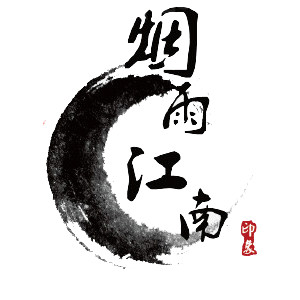 烟雨江南
印象